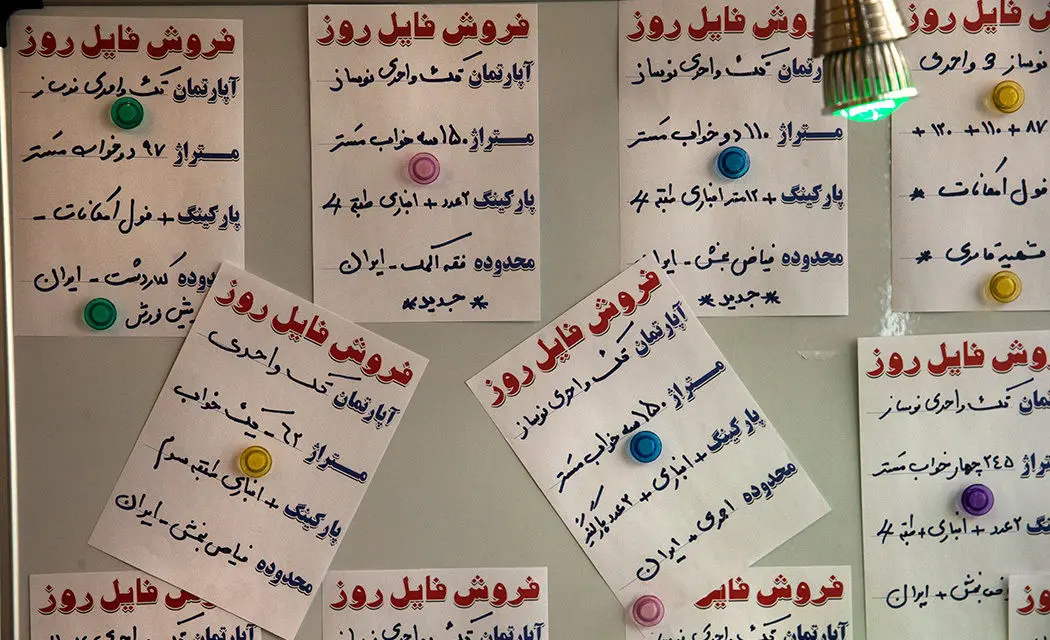 فروش فایل روز
آپارتمان تک واحدی نوساز
متراژ ۹۷ دو خواب مستر
پارکینگ + فول امکانات -
کلاردشت - ایران
فروش فایل روز
آپارتمان تک واحدی نوساز
متراژ ۱۵۰ سه خواب مستر
پارکینگ ۲ عدد + انباری طبقه 4
محدوده - ایران
* جدید *
فروش فایل روز
تمان تک واحدی نوساز
متراژ ۱۱۰ دو خواب مستر
پارکینگ + ۱۲ متر انباری طبقه 4
محدوده فیاض بخش - ایران
* جدید *
فروش فایل
نوساز 3 واحدی
۸۷ + ۱۱۰ + ۱۲۰ +
فول امکانات *
*
فروش فایل روز
آپارتمان تک واحدی
متراژ ۶۲ - یک خواب
پارکینگ + انباری طبقه سوم
محدوده فیاض بخش - ایران
فروش فایل روز
آپارتمان تک واحدی نوساز
متراژ ۱۵۰ سه خواب مستر
پارکینگ + انباری + ۲ عدد پارکینگ
محدوده + ایران
فایل روز
تک واحدی نوساز
۲۴۵ چهار خواب مستر
۲ عدد + انباری + طبقه 4
بخش + ایران
فروش فایل روز
آپارتمان تک واحدی
فروش فایل روز
آپارتمان تک واحدی
فروش فایل روز
آپارتمان تک واحدی نوساز